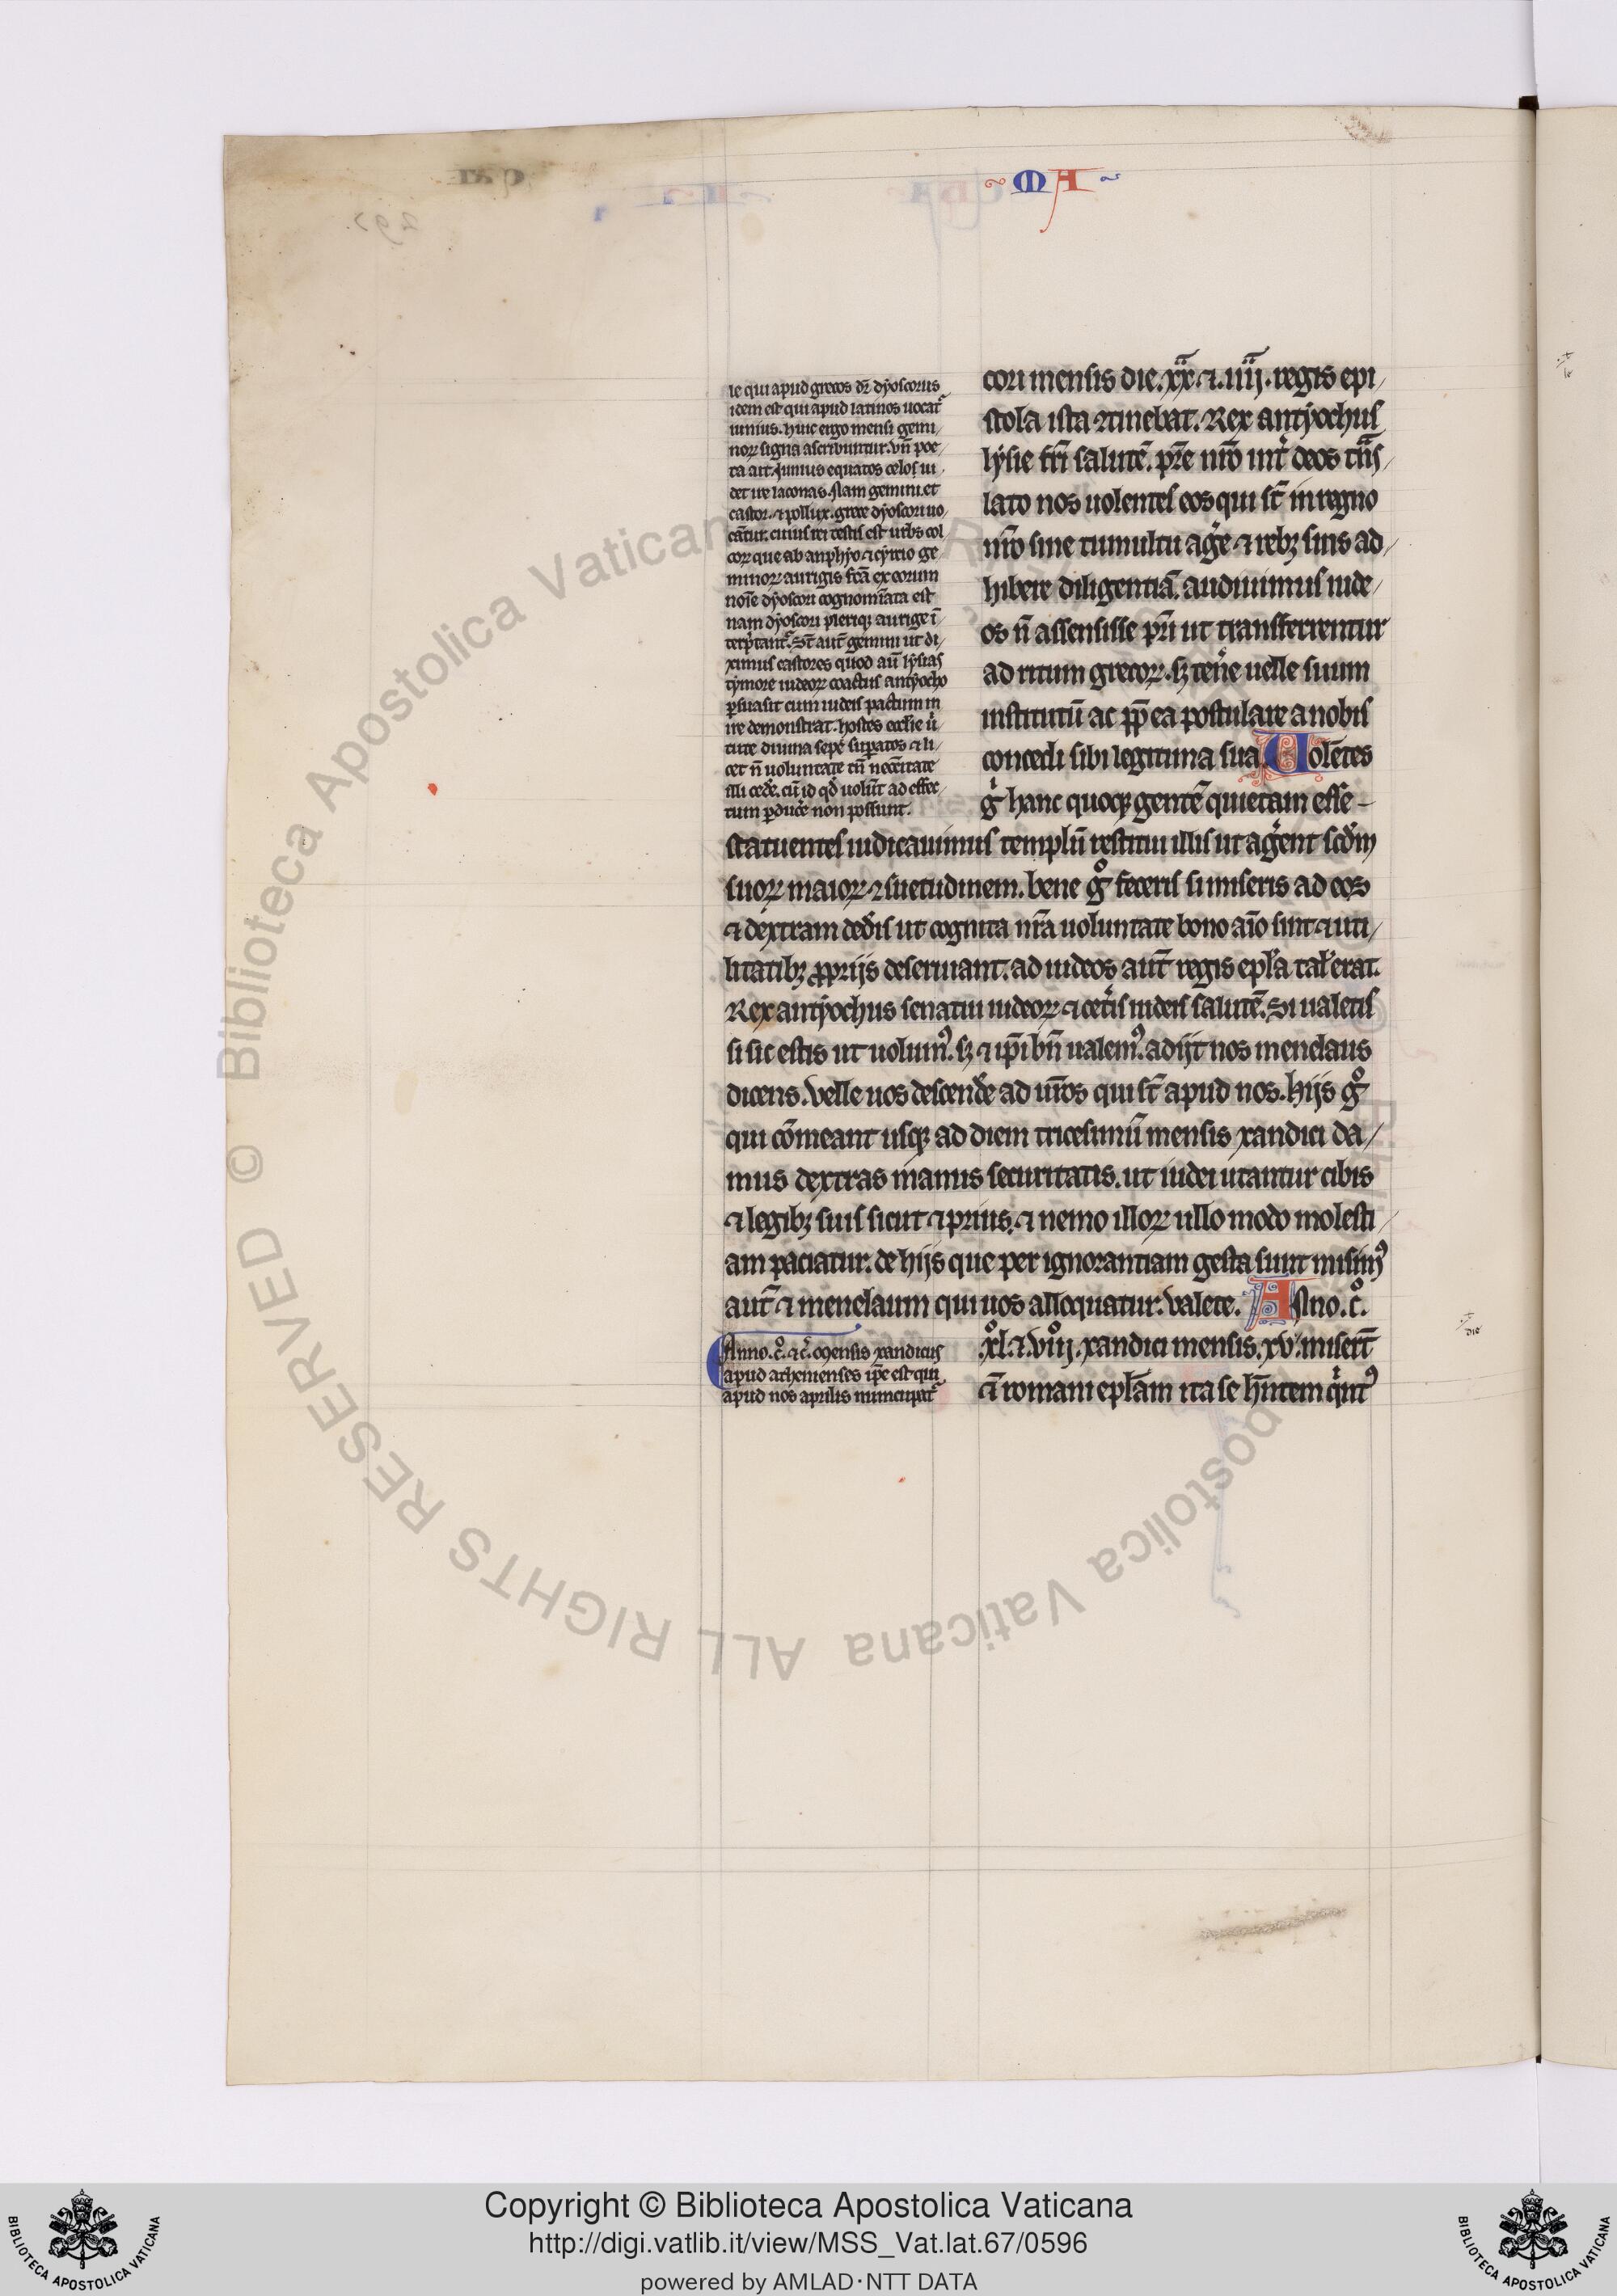 MA
le qui apud grecos dr̄ dyoscorus
idem est qui apud latinos uocat᷑
iunius. huic ergo mensi gemi/
norꝝ signa ascribuntur. Vn̄ poe/
ta ait. Junius equatos celos ui/
det ire laconas. Nam gemini. et
castor. ⁊ pollux. grece dyoscori uo
cātur. cuius rei testis est urbs col
corꝝ que ab anphyo ⁊ cyrrio ge/
minorꝝ aurigis fcā ex eorum
noīe dyoscori cognomīata est
nam dyoscori plerique aurige ī/
terp̄tant᷑. St̄ aut̄ gemini ut di/
ximus castores quod aū lysias
tymore iudeorꝝ coactus antyocho
ꝑsuasit cum iudeis pactum in
ire demonstrat. hostes ecclīe uͥ
tute diuina sepe suꝑatos ⁊ li/
cet n̄ uoluntate tn̄ necc̄itate
illi cedē. cū id qd̄ uolūt ad effec/
tum ꝑducē non possunt.
cori mensis die. xx̄. ⁊. iiij. regis epi/
stola ista ꝯtinebat. Rex antyochus
lysie fr̄i salutē. pr̄e nr̄o int̄ deos tn̄s/
lato nos uolentes eos qui st̄ in regno
nr̄o sine tumultu agē ⁊ rebꝫ suis ad/
hibere diligentiā. audiuimus iude/
os n̄ assensisse pr̄i ut transferrentur
ad ritum grecorꝝ. sꝫ tenē uelle suum
institutū ac ꝓp̄ea postulare a nobis
concedi sibi legitima sua. Uolētes
gͥ hanc quoqꝫ gentē quietam esse –
statuentes iudicauimus templū restitui illis ut agēnt scdm̄
suorꝝ maiorꝝ ꝯsuetudinem. bene gͦ feceris si miseris ad eos
⁊ dextram dedīs ut cognita nr̄a uoluntate bono aīo sint ⁊ uti/
litatibꝫ ꝓprijs deseruiant. ad iudeos aut̄ regis epl̄a tal̄ erat.
Rex antyochus senatui iudeorꝝ ⁊ cetīs iudeis salutē. Si ualetis
si sic estis ut uolumꝰ. sꝫ ⁊ ip̄i bn̄ ualemꝰ. adijt nos menelaus
dicens. Velle uos descendē ad ur̄os qui st̄ apud nos. hijs gͦ
qui cōmeant usqꝫ ad diem tricesimū mensis xandici da/
mus dextras manus securitatis. ut iudei utantur cibis
⁊ legibꝫ suis sicut ⁊ prius. ⁊ nemo illorꝝ ullo modo molesti/
am paciatur. de hijs que per ignorantiam gesta sunt misimꝰ
aut̄ ⁊ menelaum qui uos alloquatur. Valete. Anno. cͦ.
xͦl. ⁊. viͦij. xandici mensis. xv. miserūt
Anno. cͦ. ⁊ c̄. Mensis xandicus
apud athenienses ip̄e est qui
apud nos aprilis nuncupat᷑
⁊ romani epl̄am ita se hn̄tem qͥntꝰ
Copyright © Biblioteca Apostolica Vaticana
http://digi.vatlib.it/view/MSS_Vat.lat.67/0596
powered by AMLAD·NTT DATA
BIBLIOTECA APOSTOLICA VATICANA
BIBLIOTECA APOSTOLICA VATICANA